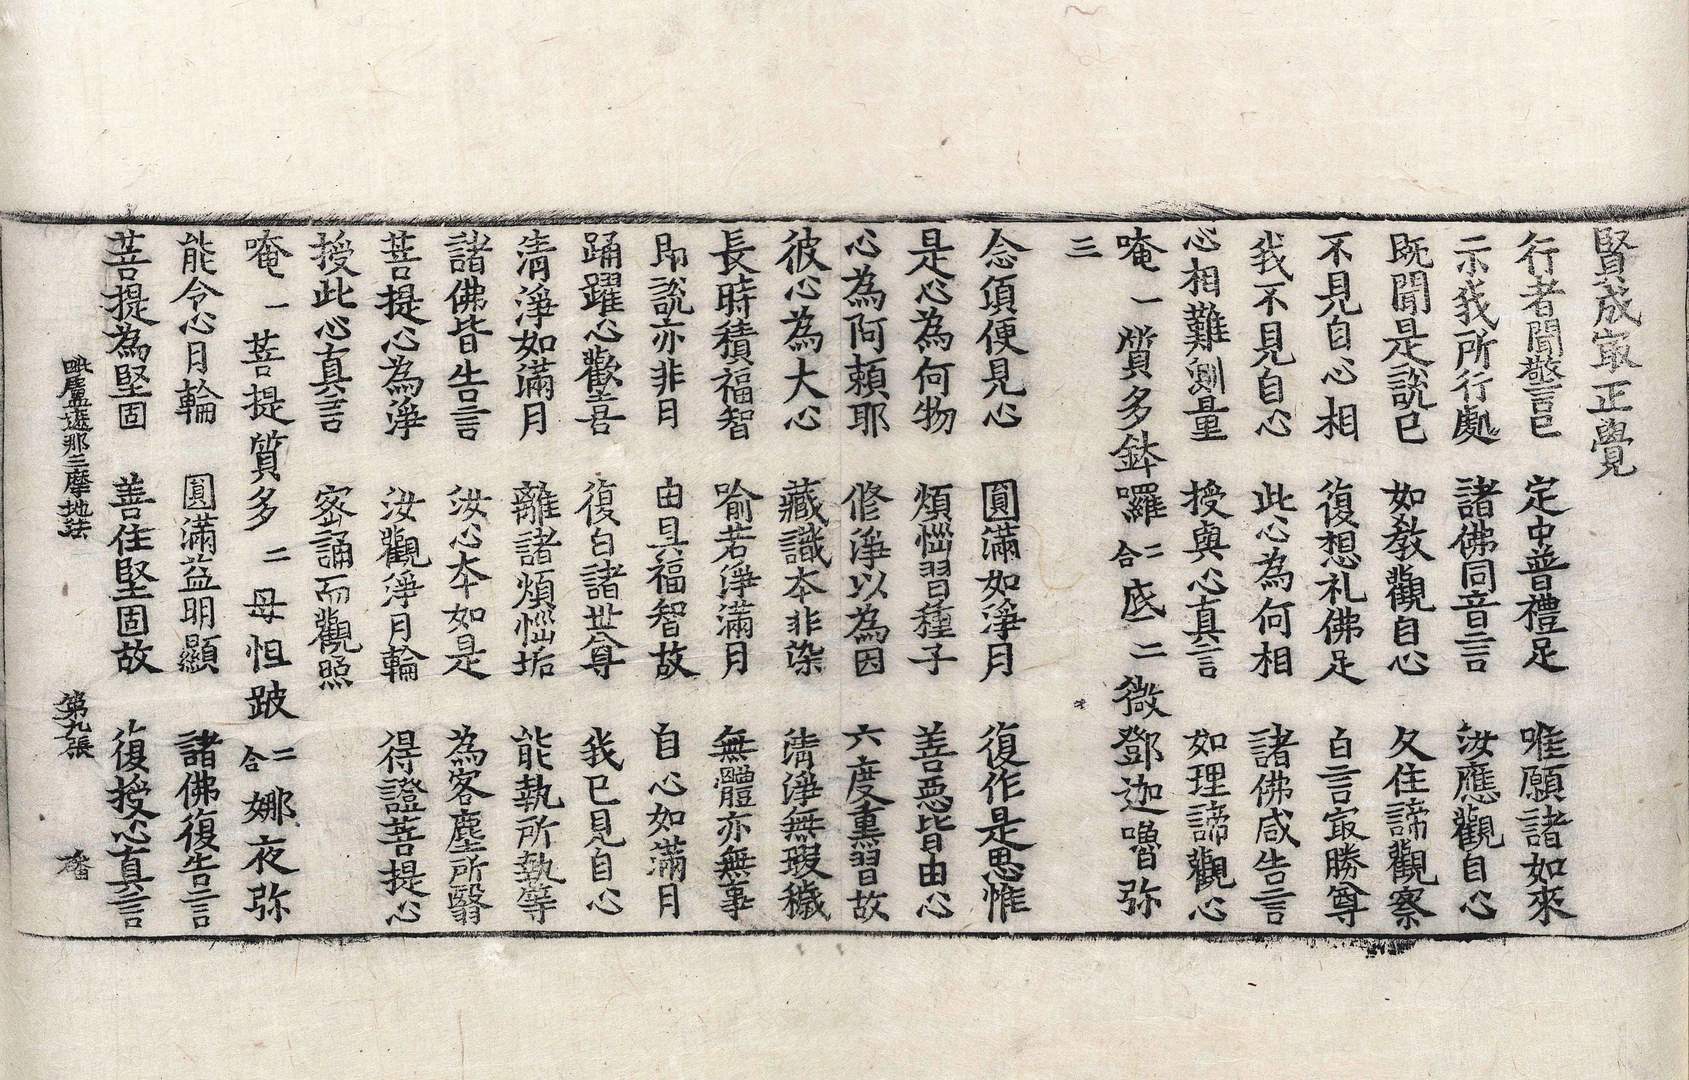 賢成㝡正覺
行者聞警言已　定中普禮足　唯願諸如來
示我所行處　諸佛同音言　汝應觀自心
旣聞是說已　如教觀自心　久住諦觀察
不見自心相　復想礼佛足　白言㝡勝尊
我不見自心　此心為何相　諸佛咸告言
心相難測量　授與心真言　如理諦觀心
唵一質多鉢囉二合底二微鄧迦嚕弥
三
念須便見心　圓滿如淨月　復作是思惟
是心為何物　煩惱習種子　善惡皆由心
心為阿頼耶　修淨以為因　六度熏習故
彼心為大心　藏識本非染　清淨無瑕穢
長時積福智　喻若淨滿月　無體亦無事
即說亦非月　由具福智故　自心如滿月
踊躍心歡喜　復白諸世尊　我已見自心
清淨如滿月　離諸煩惱垢　能執所執等
諸佛皆告言　汝心本如是　為客塵所翳
菩提心為淨　汝觀淨月輪　得證菩提心
授此心真言　密誦而觀照
唵一菩提質多二母怛跛二合娜夜弥
能令心月輪　圓滿益明顯　諸佛復告言
菩提為堅固　善住堅固故　復授心真言
毗盧遮那三摩地法　第九張